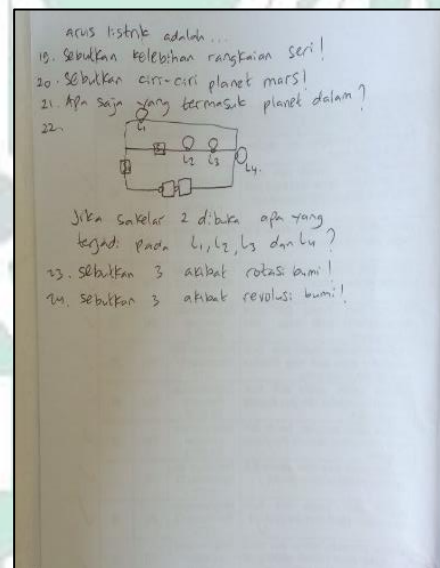 arus listrik adalah...
19. Sebutkan kelebihan rangkaian seri!
20. Sebutkan ciri-ciri planet mars!
21. Apa saja yang termasuk planet dalam?
22.
L1
S2
L2
L3
L4.
Jika sakelar 2 dibuka apa yang
terjadi pada L1, L2, L3 dan L4?
23. Sebutkan 3 akibat rotasi bumi!
24. Sebutkan 3 akibat revolusi bumi!